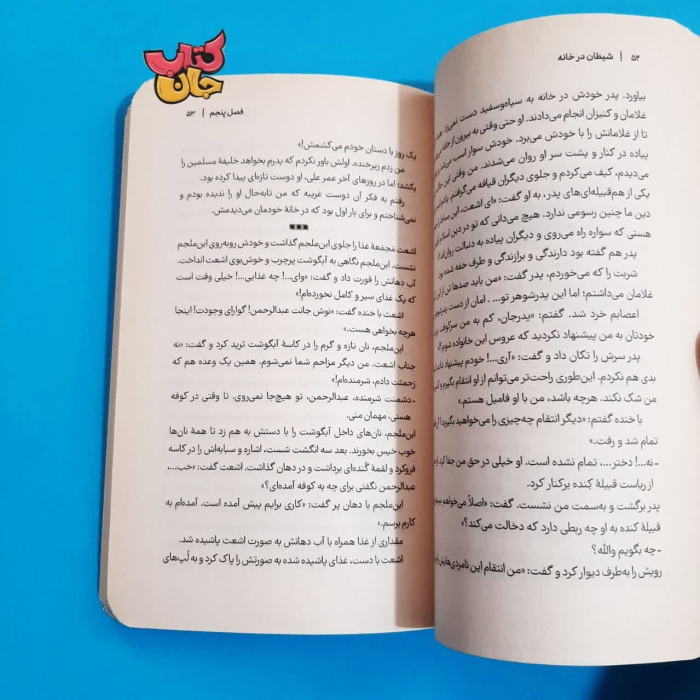 کتاب
جان
۵۲ | شیطان در خانه
بیاورد. پدر خودش در خانه به سیاه‌وسفید دست نمی‌زد.
غلامان و کنیزان انجام می‌دادند. او حتی وقتی به بیرون از خانه
تا از غلامانش را با خودش می‌برد. خودش سوار اسب
پیاده در کنار و پشت سر او روان می‌شدند. من وقتی این
می‌دیدم، کیف می‌کردم و جلوی دیگران قیافه می‌گرفتم.
یکی از هم‌قبیله‌ای‌های پدر، به او گفت: «ای اشعث، این
دین ما چنین رسومی ندارد. هیچ می‌دانی که تو در دین
هستی که سواره راه می‌روی و دیگران پیاده به دنبالت
پدر هم گفته بود دارندگی و برازندگی و طرف خفه شده بود
شربت را که می‌خوردم، پدر گفت: «من باید صدها تن از این
غلامان می‌داشتم؛ اما این پدرشوهر تو.... امان از دست
اعصابم خرد شد. گفتم: «پدرجان، کم به من سرکوفت
خودتان به من پیشنهاد نکردید که عروس این خانواده شوم؟»
پدر سرش را تکان داد و گفت: «آری...! خودم پیشنهاد دادم
بدی هم نکردم. این‌طوری راحت‌تر می‌توانم از او انتقام بگیرم و
من شک نکند. هرچه باشد، من با او فامیل هستم.»
با خنده گفتم: «دیگر انتقام چه‌چیزی را می‌خواهید بگیرید؟
تمام شد و رفت.»
-نه...! دختر.... تمام نشده است. او خیلی در حق من جفا
از ریاست قبیلهٔ کِنده برکنار کرد.
پدر برگشت و به‌سمت من نشست. گفت: «اصلاً می‌خواهم
قبیلهٔ کنده به او چه ربطی دارد که دخالت می‌کند؟»
-چه بگویم والله؟
رویش را به‌طرف دیوار کرد و گفت: «من انتقام این نامردی‌هایش
فصل پنجم | ۵۳
یک روز با دستان خودم می‌کشمش!»
من زدم زیرخنده. اولش باور نکردم که پدرم بخواهد خلیفهٔ مسلمین را
بکشد؛ اما در روزهای آخر عمر علی، او دوست تازه‌ای پیدا کرده بود.
رفتم به فکر آن دوست غریبه که من تابه‌حال او را ندیده بودم و
نمی‌شناختم و برای بار اول بود که در خانهٔ خودمان می‌دیدمش.
اشعث مَجمَعهٔ غذا را جلوی ابن‌ملجم گذاشت و خودش روبه‌روی ابن‌ملجم
نشست. ابن‌ملجم نگاهی به آبگوشت پرچرب و خوش‌بوی اشعث انداخت.
آب دهانش را قورت داد و گفت: «وای...! چه غذایی...! خیلی وقت است
که یک غذای سیر و کامل نخورده‌ام!»
اشعث با خنده گفت: «نوش جانت عبدالرحمن! گوارای وجودت! اینجا
هرچه بخواهی هست.»
ابن‌ملجم، نان تازه و گرم را در کاسهٔ آبگوشت ترید کرد و گفت: «نه
جناب اشعث. من دیگر مزاحم شما نمی‌شوم. همین یک وعده هم که
زحمتت دادم، شرمنده‌ام!»
-دشمنت شرمنده، عبدالرحمن، تو هیچ‌جا نمی‌روی. تا وقتی در کوفه
هستی، مهمان منی.
ابن‌ملجم، نان‌های داخل آبگوشت را با دستش به هم زد تا همهٔ نان‌ها
خوب خیس بخورند. بعد سه انگشت شست، اشاره و سبابه‌اش را در کاسه
فروکرد و لقمهٔ گُنده‌ای برداشت و در دهان گذاشت. اشعث گفت: «خب...،
عبدالرحمن نگفتی برای چه به کوفه آمده‌ای؟»
ابن‌ملجم با دهان پر گفت: «کاری برایم پیش آمده است. آمده‌ام به
کارم برسم.»
مقداری از غذا همراه با آب دهانش به صورت اشعث پاشیده شد.
اشعث با دست، غذای پاشیده شده به صورتش را پاک کرد و به لُپ‌های